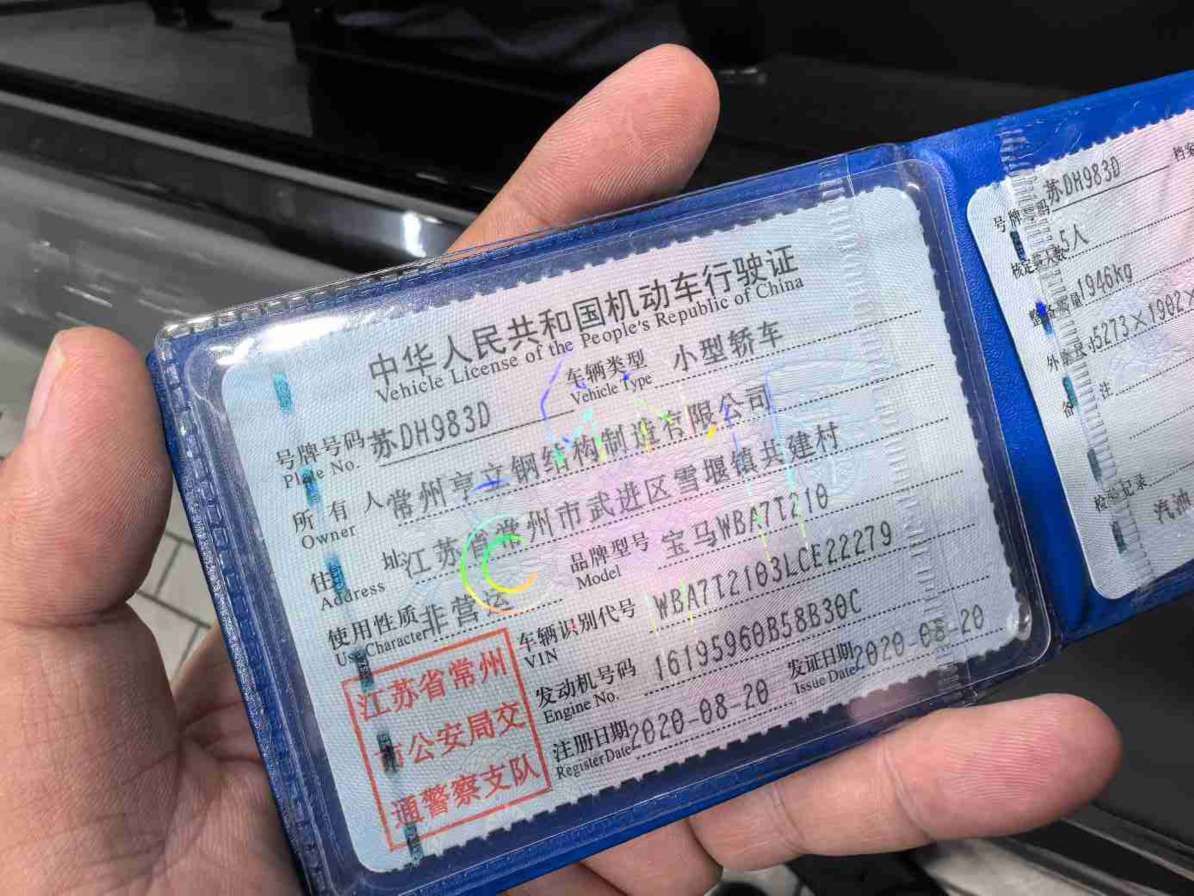 中华人民共和国机动车行驶证
Vehicle License of the People's Republic of China
号牌号码 苏DH983D 车辆类型 小型轿车
Plate No. Vehicle Type
所有人 常州亨立钢结构制造有限公司
Owner
住址 江苏省常州市武进区雪堰镇共建村
Address
使用性质 非营运 品牌型号 宝马WBA7T210
Use Character Model
车辆识别代号 WBA7T2103LCE22279
VIN
发动机号码 16195960B58B30C
Engine No.
注册日期 2020-08-20 发证日期 2020-08-20
Register Date Issue Date
江苏省常州
市公安局交
通警察支队
号牌号码 苏DH983D 档案
5人
1946kg
5273×1902×
备注
检验记录
汽油